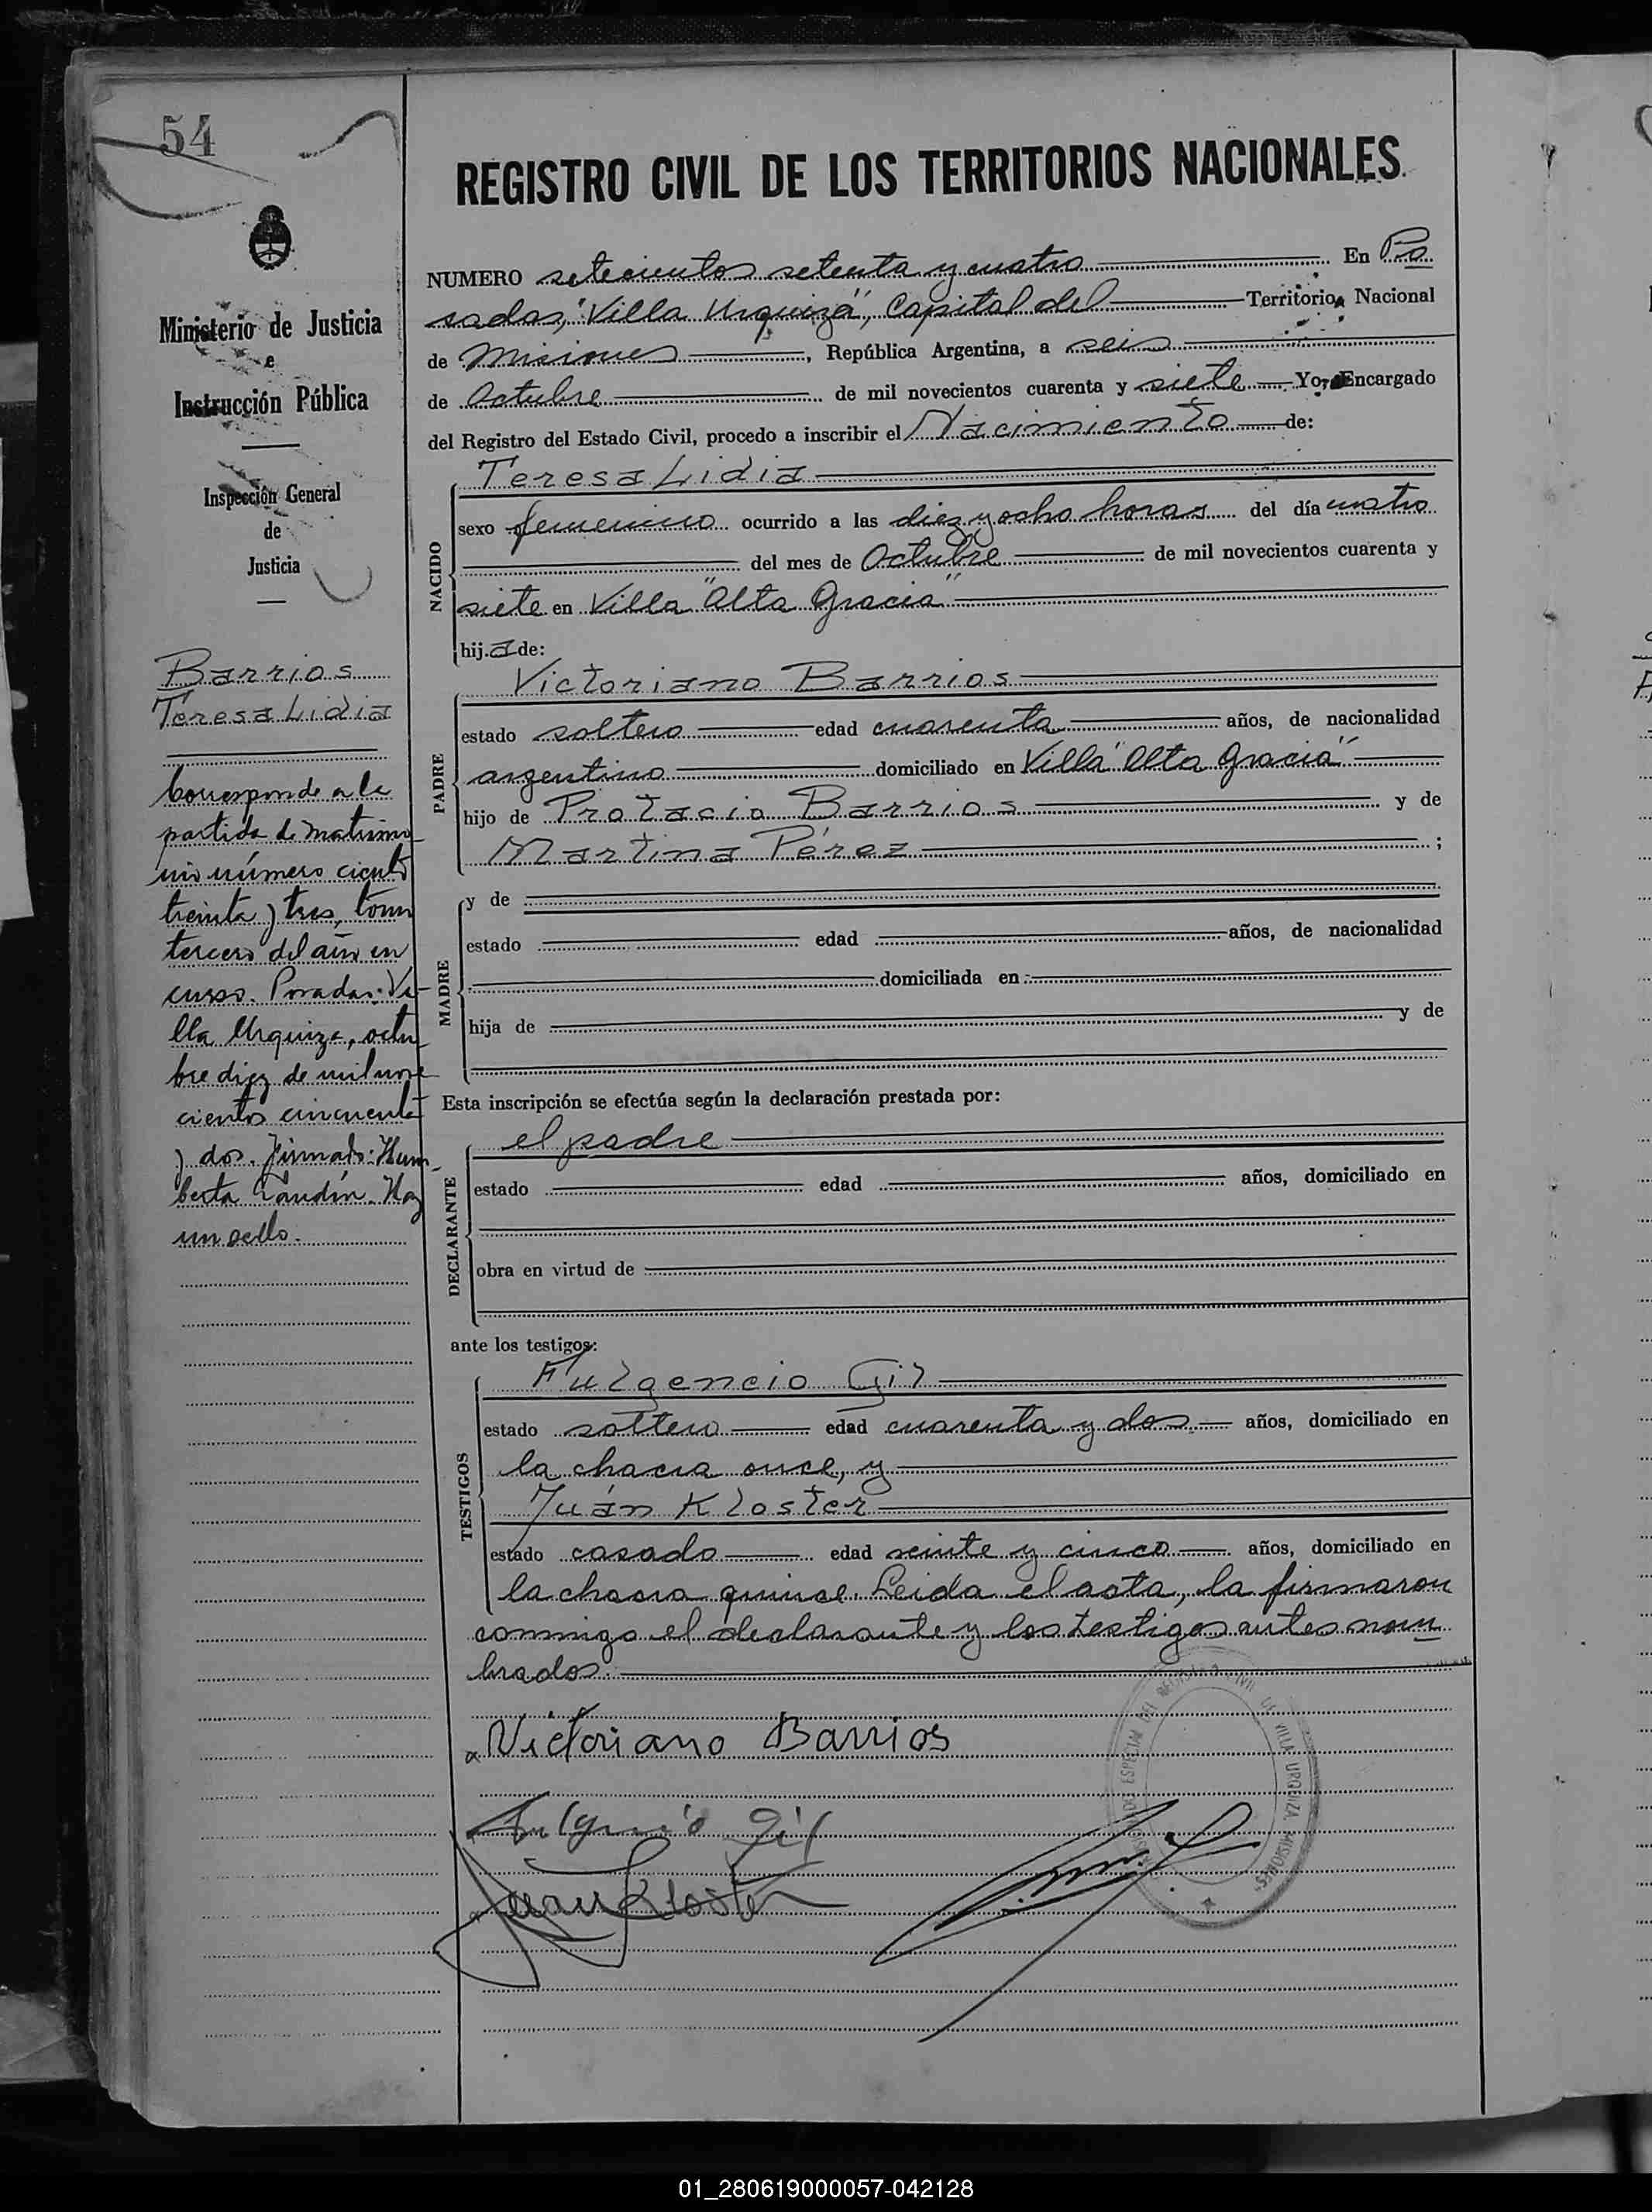 54
REGISTRO CIVIL DE LOS TERRITORIOS NACIONALES
Ministerio de Justicia
e
Instrucción Pública
Inspección General
de
Justicia
Barrios
Teresa Lidia
Corresponde a la
partida de matrimo-
nio número ciento
treinta y tres, tomo
tercero del año en
curso. Posadas. Vi-
lla Urquiza, octu-
bre diez de mil nove
cientos cincuenta
y dos. Firmado: Hum-
berto Hay
un sello.
NUMERO setecientos setenta y cuatro En Po
sadas, "Villa Urquiza", Capital del Territorio Nacional
de Misiones, República Argentina, a seis
de Octubre de mil novecientos cuarenta y siete Yo, Encargado
del Registro del Estado Civil, procedo a inscribir el Nacimiento de:
NACIDO
Teresa Lidia
sexo femenino ocurrido a las diez y ocho horas del día cuatro
del mes de Octubre de mil novecientos cuarenta y
siete en Villa "Alta Gracia"
hija de:
PADRE
Victoriano Barrios
estado soltero edad cuarenta años, de nacionalidad
argentino domiciliado en Villa "Alta Gracia"
hijo de Protacio Barrios y de
Martina Pérez ;
MADRE
y de
estado edad años, de nacionalidad
domiciliada en
hija de y de
Esta inscripción se efectúa según la declaración prestada por:
DECLARANTE
el padre
estado edad años, domiciliado en
obra en virtud de
ante los testigos:
TESTIGOS
Fulgencio Gil
estado soltero edad cuarenta y dos años, domiciliado en
la chacra once, y
Juán Kloster
estado casado edad veinte y cinco años, domiciliado en
la chacra quince. Leida el acta, la firmaron
conmigo el declarante y los testigos antes nom
brados.
Victoriano Barrios
Fulgencio Gil
Juan Kloster
ESPECIAL DEL REGISTRO CIVIL DE VILLA URQUIZA MISIONES
01_280619000057-042128